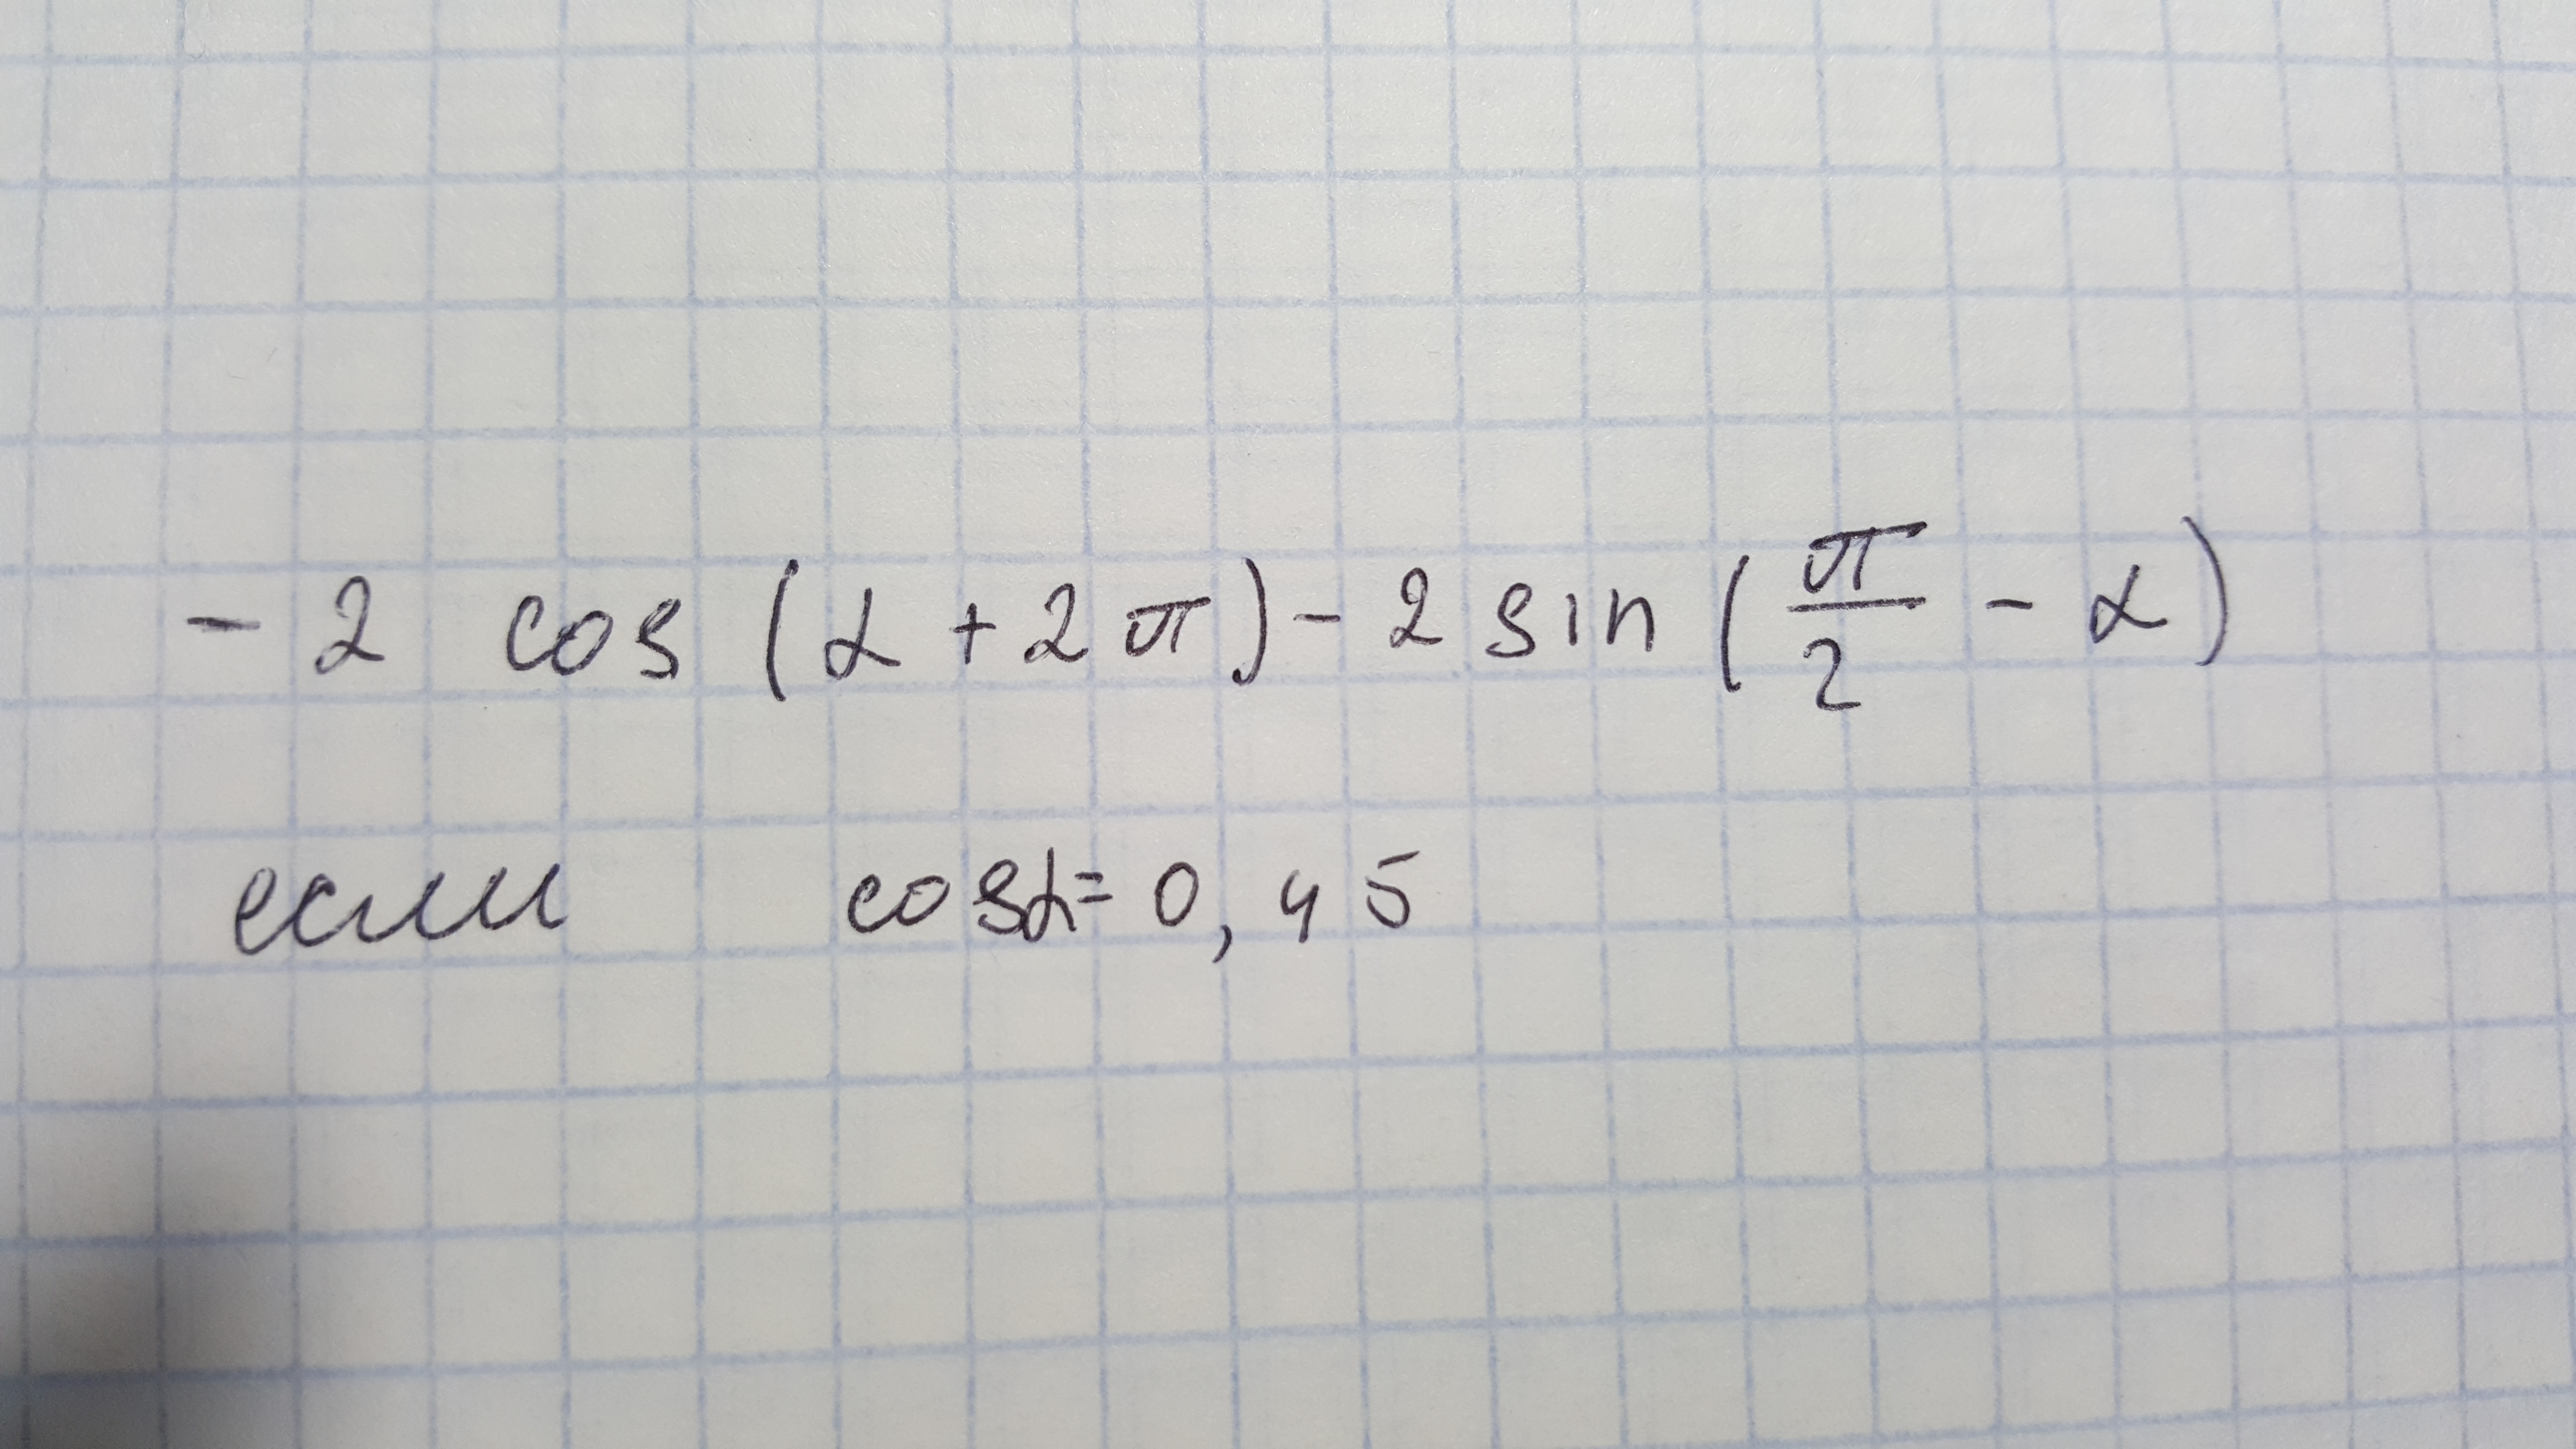 - 2 cos (α + 2π) - 2 sin (π/2 - α)
если cosα = 0,45